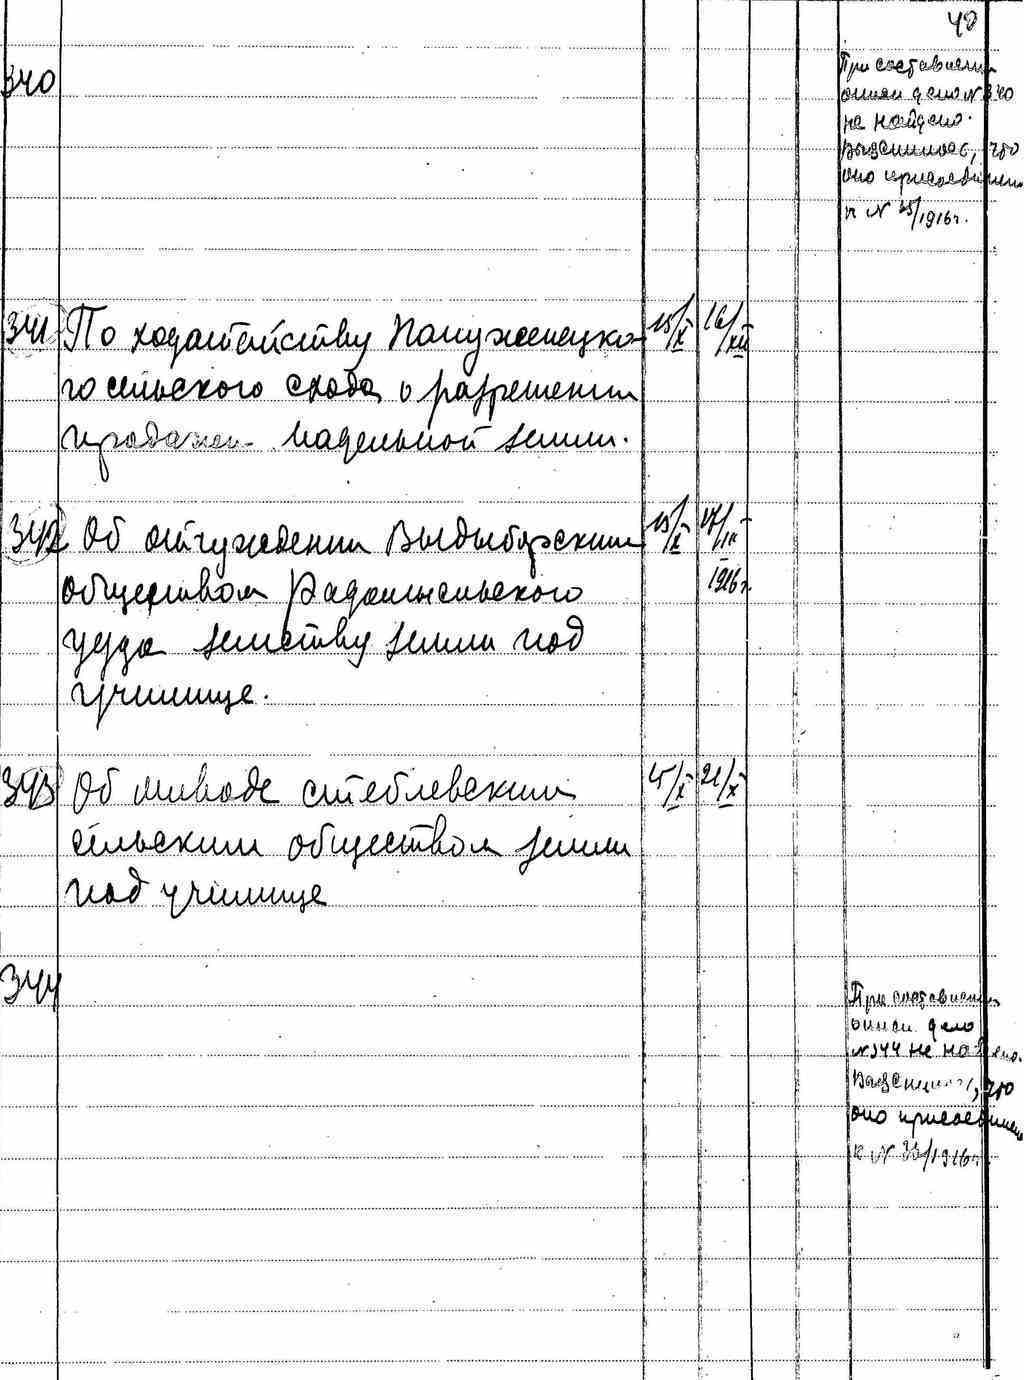 40
340
При составлении
описи дело N 340
не найдено.
Выяснилось, что
оно присоединено
к N 25/1916г.
341 По ходатайству
го сельского схода о разрешении
продажи надельной земли.
15/X 16/XII
342 Об отчуждении Выдыборским
обществом Радомысльского
уезда земству земли под
училище.
15/X 17/IX
1916г.
343 Об отводе стеблевским
сельским обществом земли
под училище
15/X 21/X
344
При составлении
описи дело
N 344 не найдено.
Выяснилось, что
оно присоединено
к N /1916г.